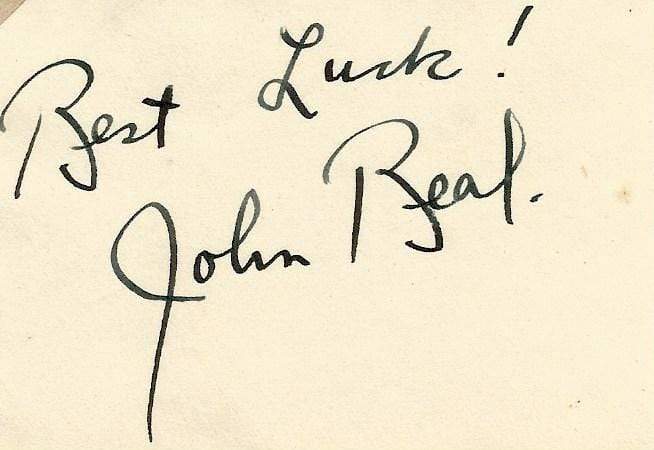 Best Luck!
John Beal.